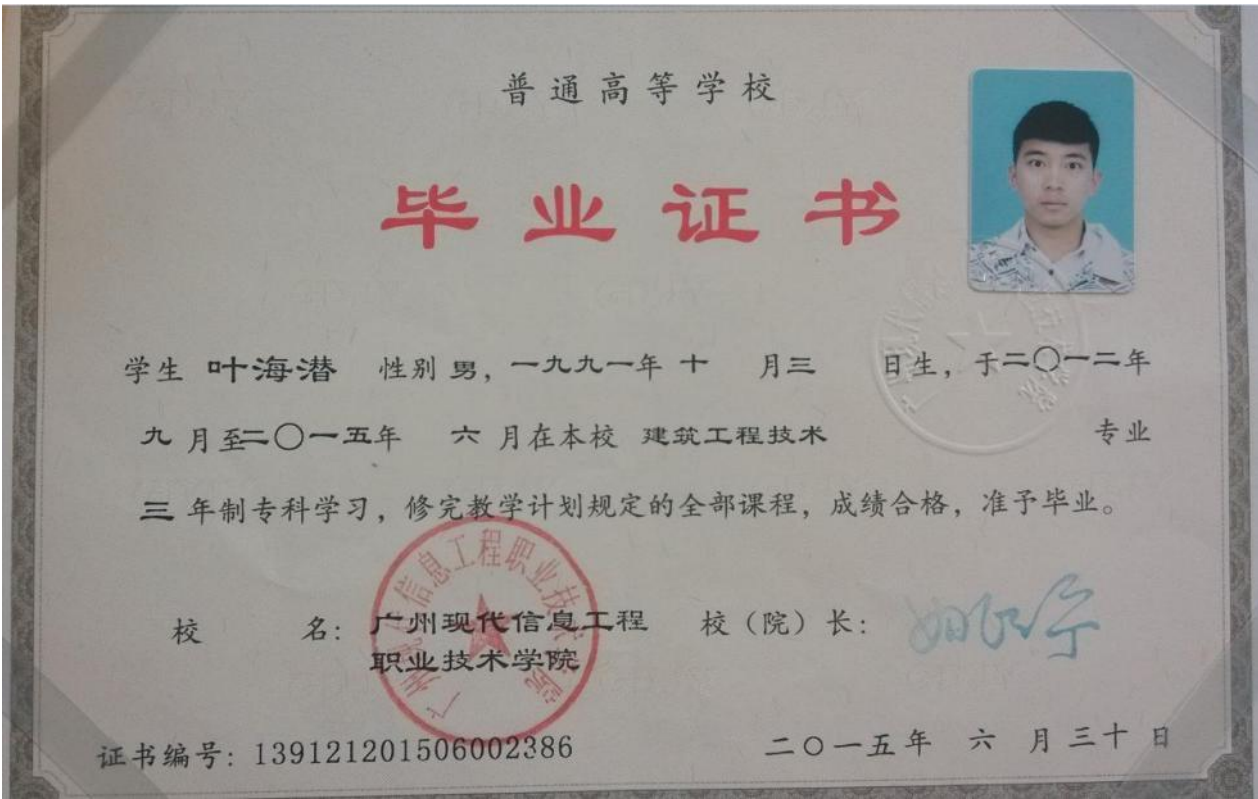 普通高等学校
毕业证书
学生 叶海潜 性别 男，一九九一年 十 月三 日生，于二〇一二年
九 月至二〇一五年 六 月在本校 建筑工程技术 专业
三 年制专科学习，修完教学计划规定的全部课程，成绩合格，准予毕业。
校 名：广州现代信息工程 校（院）长：
职业技术学院
广州现代信息工程职业技术学院
证书编号：139121201506002386 二〇一五年 六 月三十 日